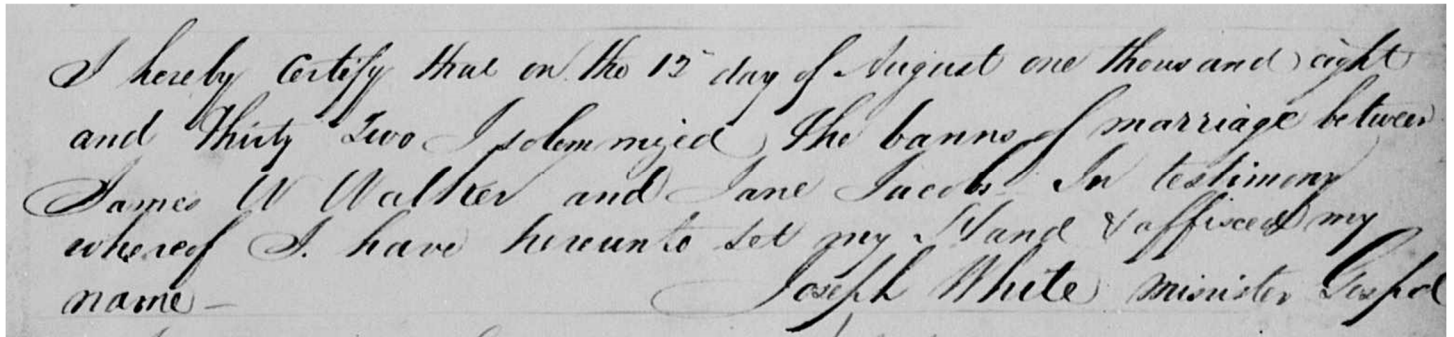 I hereby Certify that on the 12 day of August one thousand eight
and Thirty Two I solemnized the banns of marriage between
James W Walker and Jane Jacobs In testimony
whereof I have hereunto set my Hand & affixed my
name — Joseph White minister Gospel